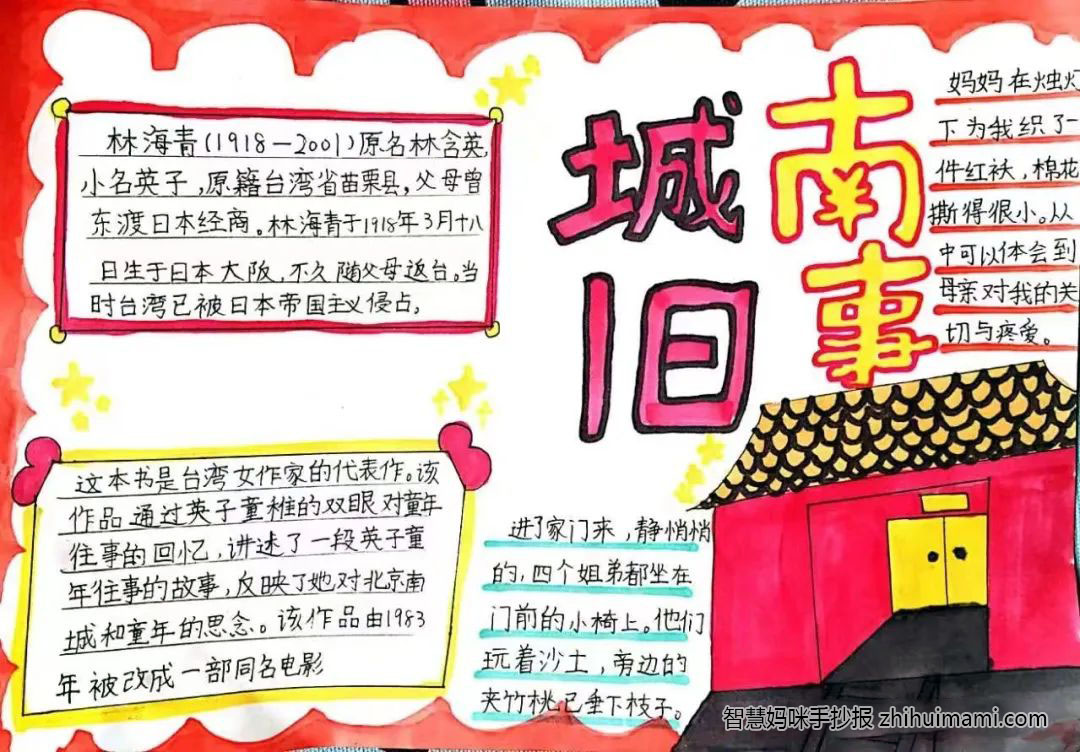 林海青(1918-2001)原名林含英,
小名英子,原籍台湾省苗栗县,父母曾
东渡日本经商。林海青于1918年3月十八
日生于日本大阪,不久随父母返台。当
时台湾已被日本帝国主义侵占。
城南
旧事
妈妈在烛灯
下为我织了一
件红袄,棉花
撕得很小。从
中可以体会到
母亲对我的关
切与疼爱。
这本书是台湾女作家的代表作。该
作品通过英子童稚的双眼对童年
往事的回忆,讲述了一段英子童
年往事的故事,反映了她对北京南
城和童年的思念。该作品由1983
年被改成一部同名电影
进了家门来,静悄悄
的,四个姐弟都坐在
门前的小椅上。他们
玩着沙土,旁边的
夹竹桃已垂下枝子。
智慧妈咪手抄报 zhihuimami.com